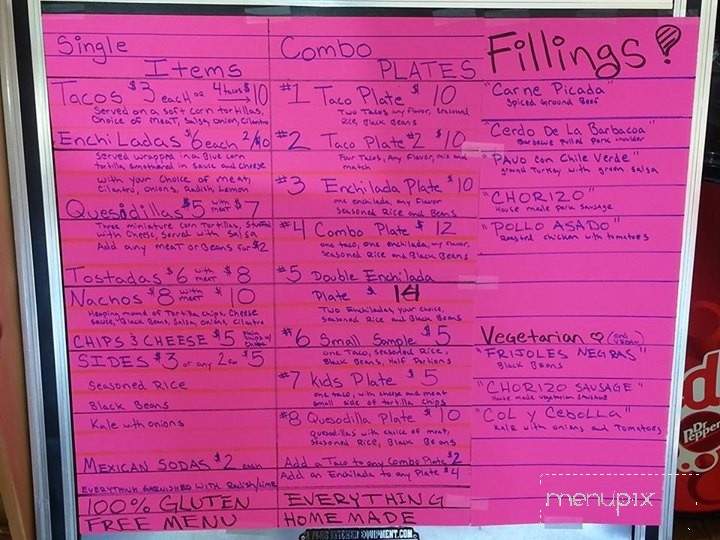 Single
Items
Tacos $3 each or 4 tacos $10
Served on a soft corn tortillas,
Choice of meat, Salsa, onion, Cilantro
Enchiladas $6 each 2/$10
Served wrapped in a Blue corn
tortilla smothered in sauce and cheese
with your choice of meat,
Cilantro, Onions, Radish Lemon
Quesidillas $5 with meat $7
Three miniature corn Tortillas, Stuffed
with Cheese, Served with Salsa
Add any meat or Beans for $2
Tostadas $6 with meat $8
Nachos $8 with meat $10
Heaping mound of Tortilla chips, Cheese
sauce, Black Beans, Salsa, Onions, Cilantro
CHIPS & CHEESE $5
SIDES $3 or any 2 for $5
Seasoned Rice
Black Beans
Kale with onions
MEXICAN SODAS $2 each
EVERYTHING GARNISHED WITH Radish/lime
100% GLUTEN
FREE MENU
Combo
PLATES
#1 Taco Plate $10
Two Tacos any flavor, seasoned
Rice, Black Beans
#2 Taco Plate #2 $10
Four Tacos, Any flavor, mix and
match
#3 Enchilada Plate $10
one enchilada, any flavor
Seasoned Rice and Beans
#4 Combo Plate $12
one taco, one enchilada, any flavor,
Seasoned Rice and Black Beans
#5 Double Enchilada
Plate $14
Two Enchiladas, your choice,
seasoned Rice and Black Beans
#6 Small Sample $5
one Taco, Seasoned Rice,
Black Beans, Half Portions
#7 Kids Plate $5
one taco, with cheese and meat
small side of tortilla chips
#8 Quesodilla Plate $10
Quesadillas with choice of meat,
Seasoned RICE, Black Beans
Add a Taco to any Combo Plate $2
Add an Enchilada to any Plate $4
EVERYTHING
HOME MADE
Fillings!
"Carne Picada"
Spiced Ground Beef
"Cerdo De La Barbacoa"
Barbecue pulled pork shoulder
"PAVO con Chile Verde"
ground Turkey with green salsa
"CHORIZO"
House made pork sausage
"POLLO ASADO"
Roasted chicken with tomatoes
Vegetarian
"FRIJOLES NEGRAS"
Black Beans
"CHORIZO SAUSAGE"
House made vegetarian sausage
"COL y Cebolla"
Kale with onions and Tomatoes
Dr Pepper
menupix